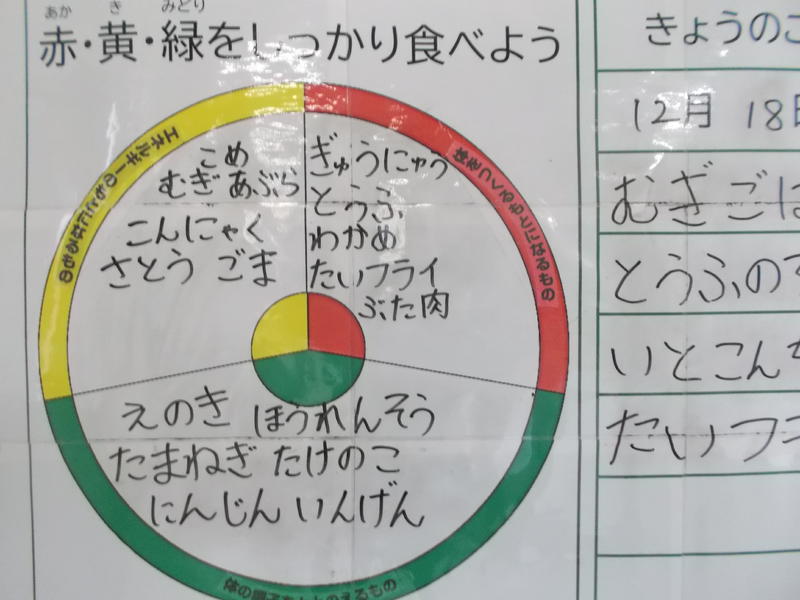 あか き みどり
赤・黄・緑をしっかり食べよう
エネルギーのもとになるもの
こめ
むぎ あぶら
こんにゃく
さとう ごま
体をつくるもとになるもの
ぎゅうにゅう
とうふ
わかめ
たいフライ
ぶた肉
えのき ほうれんそう
たまねぎ たけのこ
にんじん いんげん
体の調子をととのえるもの
きょうのこ
12月 18日
むぎごは
とうふの
いとこん
たいフラ